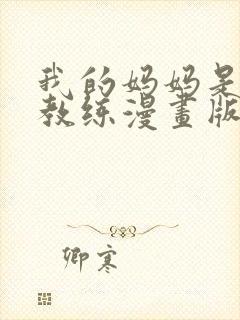 我的妈妈是
教练漫畫版
卿寒